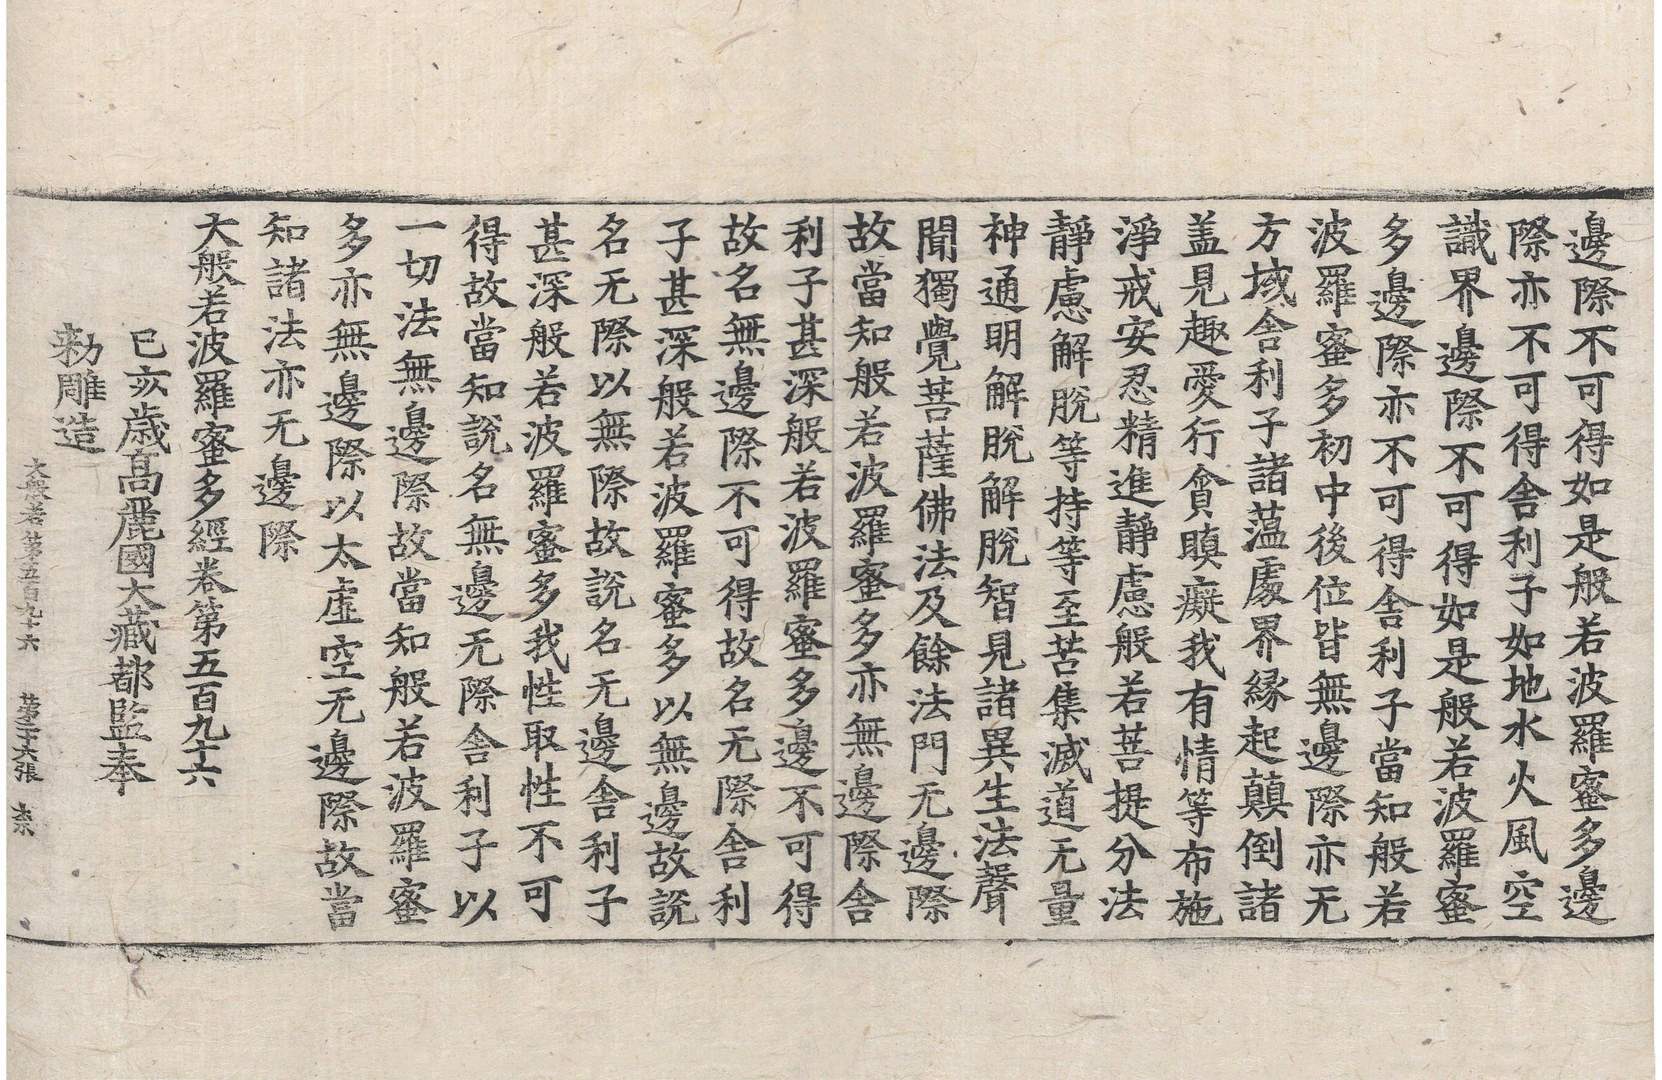 邊際不可得如是般若波羅蜜多邊
際亦不可得舍利子如地水火風空
識界邊際不可得如是般若波羅蜜
多邊際亦不可得舍利子當知般若
波羅蜜多初中後位皆無邊際亦无
方域舍利子諸薀處界緣起顚倒諸
盖見趣愛行貪瞋癡我有情等布施
淨戒安忍精進靜慮般若菩提分法
靜慮解脫等持等至苦集滅道无量
神通明解脫解脫智見諸異生法聲
聞獨覺菩薩佛法及餘法門无邊際
故當知般若波羅蜜多亦無邊際舍
利子甚深般若波羅蜜多邊不可得
故名無邊際不可得故名无際舍利
子甚深般若波羅蜜多以無邊故說
名无際以無際故說名无邊舍利子
甚深般若波羅蜜多我性取性不可
得故當知說名無邊无際舍利子以
一切法無邊際故當知般若波羅蜜
多亦無邊際以太虛空无邊際故當
知諸法亦无邊際
大般若波羅蜜多經卷第五百九十六
己亥歲高麗國大藏都監奉
勑雕造
大般若第五百九十六 第二十六張 柰